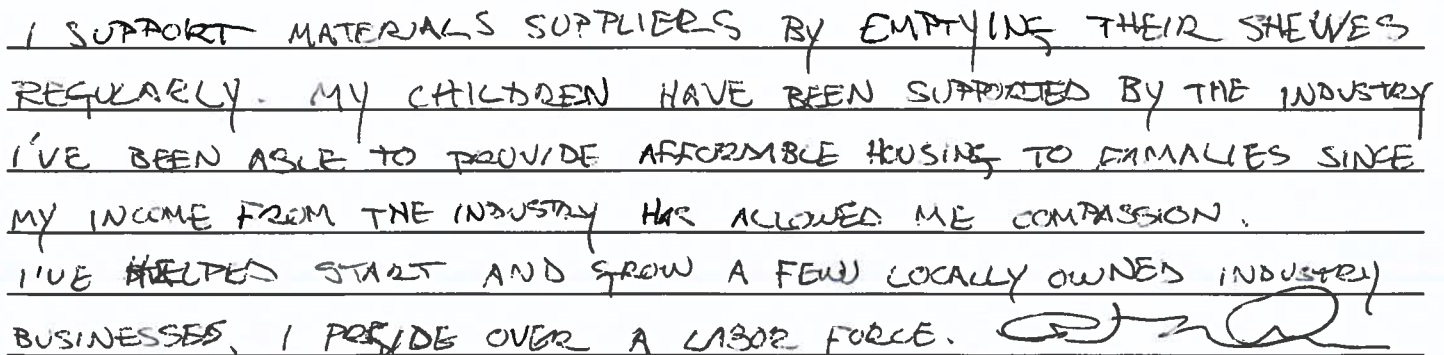 I SUPPORT MATERIALS SUPPLIERS BY EMPTYING THEIR SHELVES
REGULARLY. MY CHILDREN HAVE BEEN SUPPORTED BY THE INDUSTRY
I'VE BEEN ABLE TO PROVIDE AFFORDABLE HOUSING TO FAMALIES SINCE
MY INCOME FROM THE INDUSTRY HAS ALLOWED ME COMPASSION.
I'VE HELPED START AND GROW A FEW LOCALLY OWNED INDUSTRY
BUSINESSES. I PRESIDE OVER A LABOR FORCE.